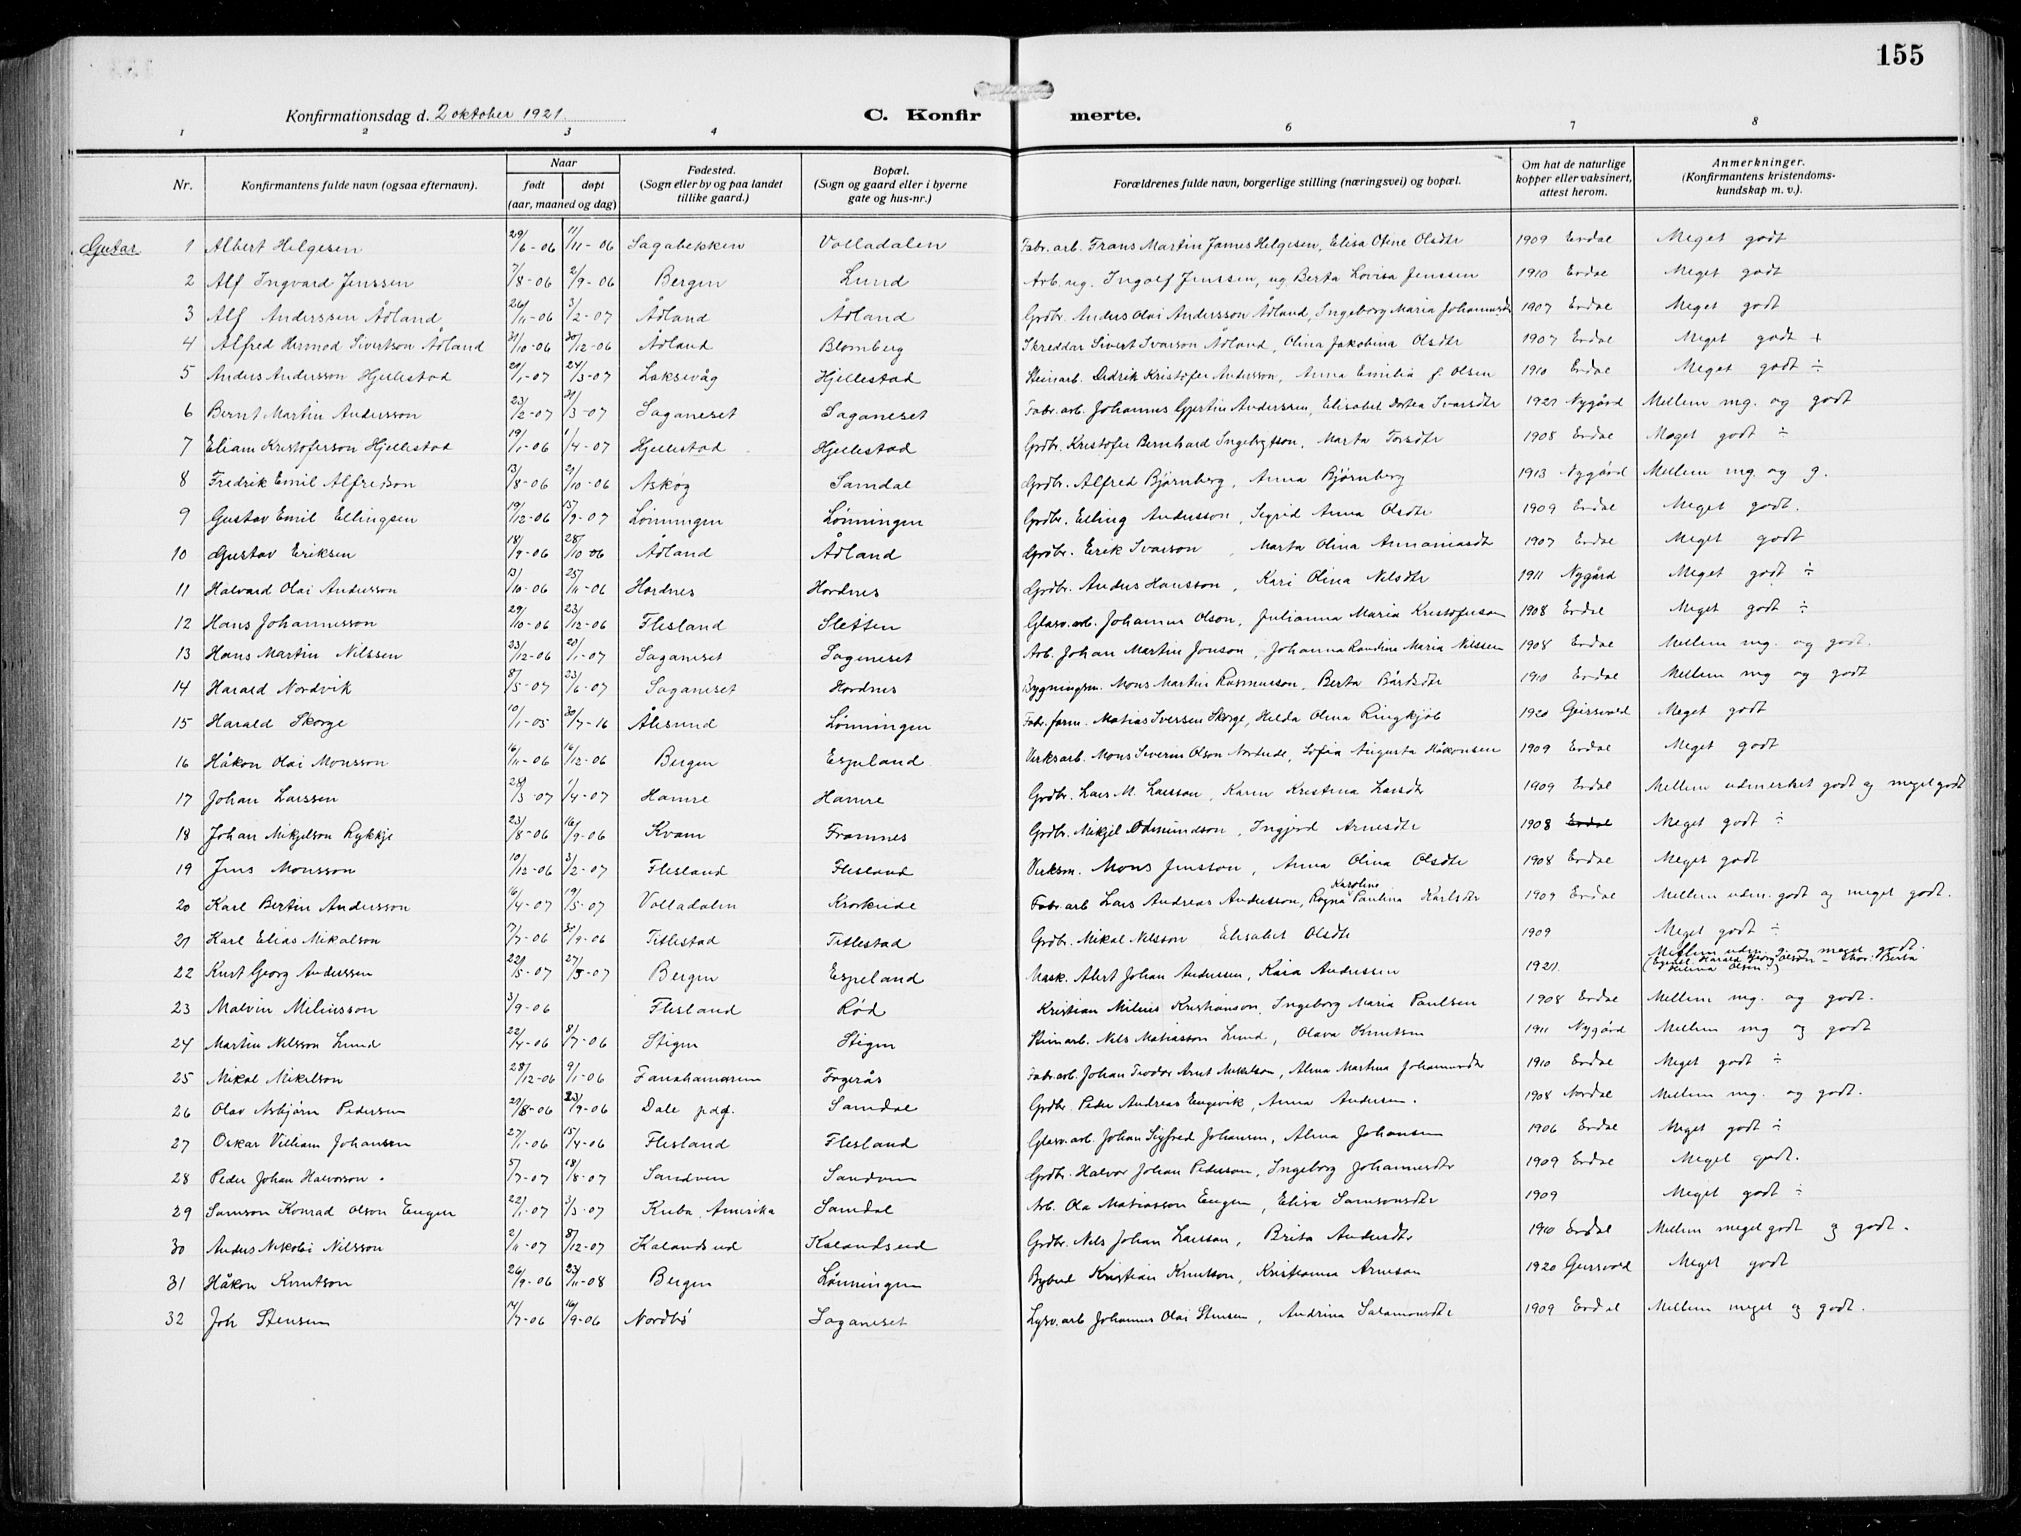 155
Konfirmationsdag d. 2 oktober 1921. C. Konfirmerte.
1 2 3 4 6 7 8
Nr. Konfirmantens fulde navn (ogsaa efternavn). Naar født døpt (aar, maaned og dag) Fødested. (Sogn eller by og paa landet tillike gaard.) Bopæl. (Sogn og gaard eller i byerne gate og hus-nr.) Forældrenes fulde navn, borgerlige stilling (næringsvei) og bopæl. Om hat de naturlige kopper eller vaksinert, attest herom. Anmerkninger. (Konfirmantens kristendoms-kundskap m. v.).
Gutar 1 Albert Helgesen 29/6-06 11/11-06 Sagabekken Volladalen Fabr.arb. Frans Martin James Helgesen, Elisa Oline Olsdtr 1909 Erdal Meget godt
2 Alf Ingvard Jenssen 7/8-06 2/9-06 Bergen Lund Arb. ug. Ingolf Jenssen, ug Berta Lovisa Jenssen 1910 Erdal Meget godt
3 Alf Anderssen Ådland 26/11-06 3/2-07 Ådland Ådland Grdbr. Anders Olai Andersson Ådland, Ingeborg Maria Johannesdtr 1907 Erdal Meget godt
4 Alfred Hermod Sivertson Ådland 31/10-06 30/12-06 Ådland Blomberg Skreddar Sivert Ivarson Ådland, Olina Jakobina Olsdtr 1907 Erdal Meget godt +
5 Anders Andersson Hjellestad 29/1-07 24/3-07 Laksevåg Hjellestad Steinarb. Didrik Kristofer Andersson, Anna Emilia f. Olsen 1910 Erdal Meget godt ÷
6 Bernt Martin Andersson 23/2-07 31/3-07 Saganeset Saganeset Fabr.arb. Johannes Gjertin Anderssen, Elisabet Dortea Ivarsdtr 1921 Nygård Mellem mg. og godt
7 Eliam Kristoferson Hjellestad 19/1-06 1/4-07 Hjellestad Hjellestad Grdbr. Kristofer Bernhard Ingebrgtson, Marta Torsdtr 1908 Erdal Meget godt ÷
8 Fredrik Emil Alfredson 13/8-06 21/10-06 Askøg Samdal Grdbr. Alfred Bjørnberg, Anna Bjørnberg 1913 Nygård Mellem mg og g.
9 Gustav Emil Ellingsen 19/12-06 13/9-07 Lønningen Lønningen Grdbr. Elling Andersson, Sigrid Anna Olsdtr 1909 Erdal Meget godt.
10 Gustav Eriksen 18/9-06 28/10 06 Ådland Ådland Grdbr. Erik Ivarson, Marta Olina Annaniasdtr 1907 Erdal Meget godt
11 Halvard Olai Andersson 13/10-06 25/11-06 Hordnes Hordnes Grdbr. Anders Hansson, Kari Olina Nilsdtr 1911 Nygård Meget godt ÷
12 Hans Johannesson 29/10-06 23/12-06 Flesland Sletten Glasv.arb. Johannes Olson, Julianna Maria Kristoferson 1908 Erdal Meget godt ÷
13 Hans Martin Nilssen 23/12-06 20/1-07 Saganeset Saganeset Arb. Johan Martin Jonson, Johanna Randine Maria Nilssen 1908 Erdal Mellem mg. og godt.
14 Harald Nordvik 8/5-07 23/6-07 Saganeset Hordnes Bygningsm. Mons Martin Rasmusson, Berta Bårdsdtr 1910 Erdal Mellem mg og godt
15 Harald Skorge 10/1-05 30/7-16 Ålesund Lønningen Fabr.form. Matias Iversen Skorge, Hilda Olina Ringkjøb 1920 Geirsvold Meget godt
16 Håkon Olai Monsson 16/11-06 16/12-06 Bergen Espeland Verksarb. Mons Severin Olson Nordeide, Sofia Augusta Håkonsen 1909 Erdal Meget godt
17 Johan Larssen 28/3-07 1/4-07 Hamre Hamre Grdbr. Lars M. Larsson, Karen Kristina Larsdtr 1909 Erdal Mellem udmerket godt og meget godt
18 Johan Mikjelson Rykkje 23/8-06 16/9-06 Kvam Framnes Grdbr. Mikjel Odmundson, Ingjerd Arnesdtr 1908 Erdal Meget godt ÷
19 Jens Monsson 10/12-06 3/2-07 Flesland Flesland Verksm. Mons Jensson, Anna Olina Olsdtr 1908 Erdal Meget godt
20 Karl Bertin Andersson 16/4-07 19/5-07 Volladalen Krokeide Fabr.arb Lars Andreas Andersson, Ragna Karoline Paulina Karlsdtr 1909 Erdal Mellem udm. godt og meget godt.
21 Karl Elias Mikalson 7/7-06 30/9-06 Titlestad Titlestad Grdbr. Mikal Nilsson Elisabet Olsdtr 1909 Meget godt ÷
22 Kurt Georg Anderssen 22/5-07 27/5-07 Bergen Espeland Mask. Alert Johan Anderssen, Kaia Anderssen 1921. Mellem udm. g. og meget godt.
Harald Georg Olson Berta
Helina Olsen
23 Malvin Meliusson 3/9-06 Flesland Rød Kristian Milius Kristianson, Ingeborg Maria Paulsen 1908 Erdal Mellem mg. og godt.
24 Martin Nilsson Lund 22/4-06 8/7-06 Stigen Stigen Steinarb. Nils Matiasson Lund, Olava Knutsen 1911 Nygård Mellem mg og godt
25 Mikal Mikelson 28/12-06 9/1-06 Fanahamaren Fagerås Fabr.arb. Johan Teodor Arnt Mikelson, Alma Martina Johannesdtr 1910 Erdal Meget godt ÷
26 Olav Asbjørn Pedersen 29/8-06 23/9-06 Dale pdg. Samdal Grdbr. Peder Andreas Engevik, Anna Andersen. 1908 Nordal Mellem mg. og godt.
27 Oskar Villiam Johansen 27/1-06 15/4-06 Flesland Flesland Glasv.arb. Johan Sigfred Johansen, Alma Johansen 1906 Erdal Meget godt ÷
28 Peder Johan Halvorson. 5/7-07 18/8-07 Sandven Sandven Grdbr. Halvor Johan Pederson, Ingeborg Johannesdtr 1909 Erdal Meget godt.
29 Samson Konrad Olson Eugen 22/1-07 3/3-07 Kuba, Amerika Samdal Arb. Ola Matiasson Eugen, Elisa Samsonsdtr 1909 Meget godt ÷
30 Anders Nikolai Nilsson 2/11-07 8/12-07 Kalandseid Kalandseid Grdbr. Nils Johan Larsson, Brita Andersdtr 1910 Erdal Mellem meget godt og godt.
31 Håkon Knutson 26/9-06 23/11-08 Bergen Lønningen Bybud Kristian Knutson, Kristianna Arneson 1920 Geirsvold Meget godt
32 Joh Stensen 14/7-06 16/9-06 Nordbø Saganeset Lysv.arb Johannes Olai Stensen, Andrina Salamonsdtr 1909 Erdal Mellem meget og godt.